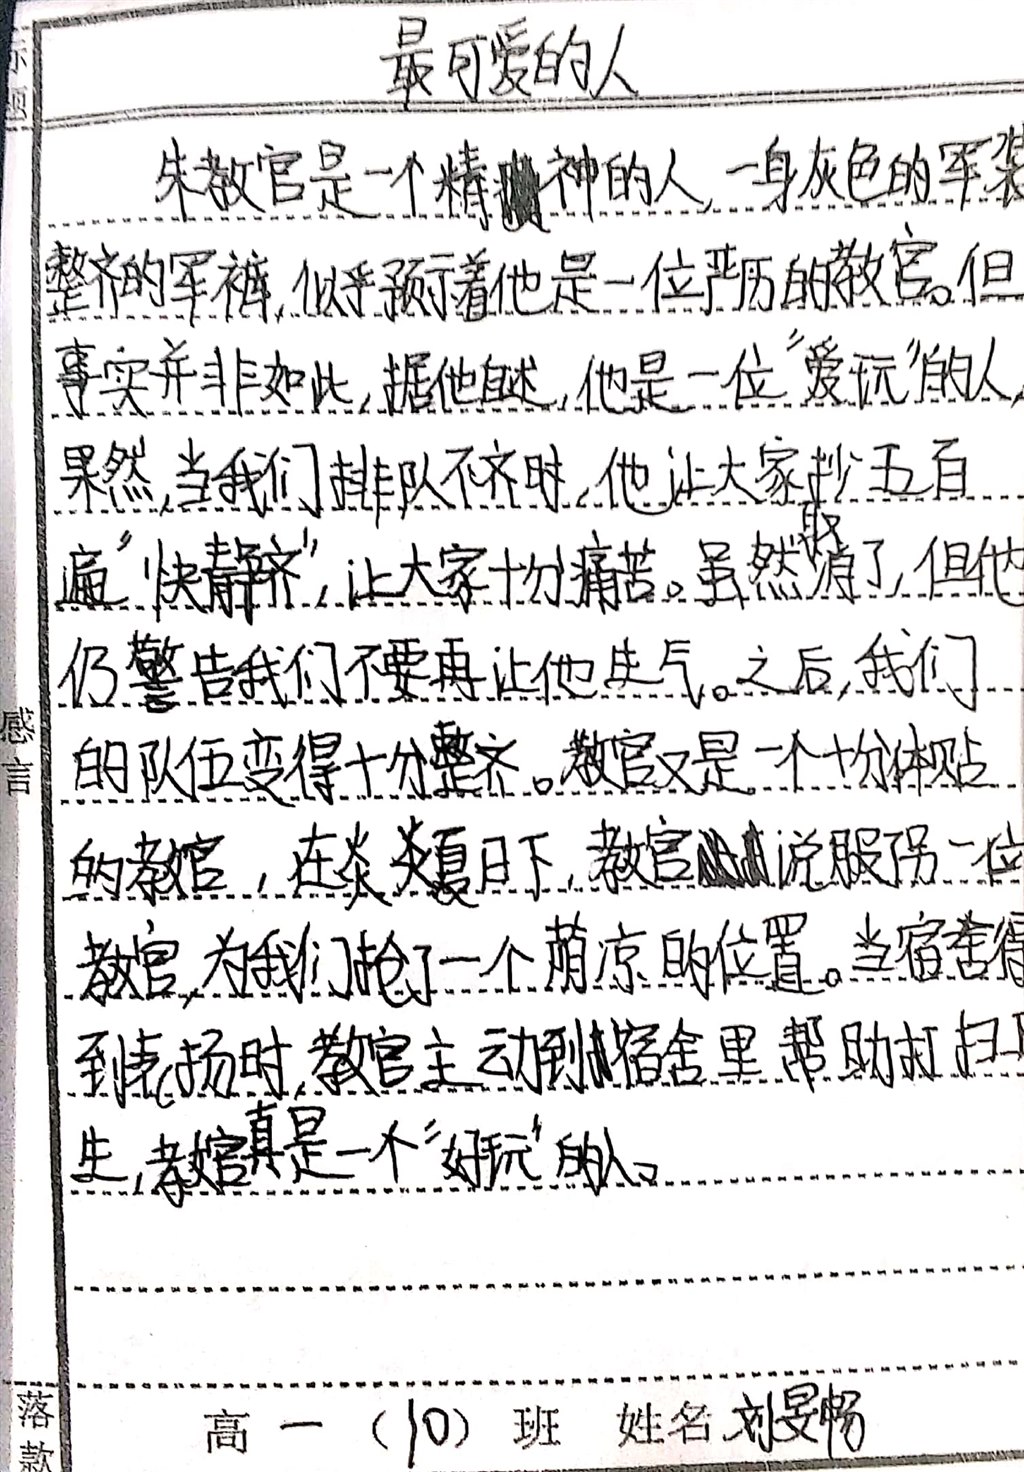 标题
最可爱的人
朱教官是一个精神的人,一身灰色的军装
整齐的军裤,似乎预示着他是一位严历的教官。但
事实并非如此,据他自述,他是一位“爱玩”的人,
果然,当我们排队不齐时,他让大家抄五百
遍“快静齐”,让大家十分痛苦。虽然取消了,但他
仍警告我们不要再让他生气。之后,我们
的队伍变得十分整齐。教官又是一个十分体贴
的教官,在炎炎夏日下,教官说服另一位
教官,为我们抢了一个荫凉的位置。当宿舍得
到表扬时,教官主动到宿舍里帮助打扫卫
生,教官真是一个“好玩”的人。
感言
落款
高一(10)班 姓名 刘旻畅